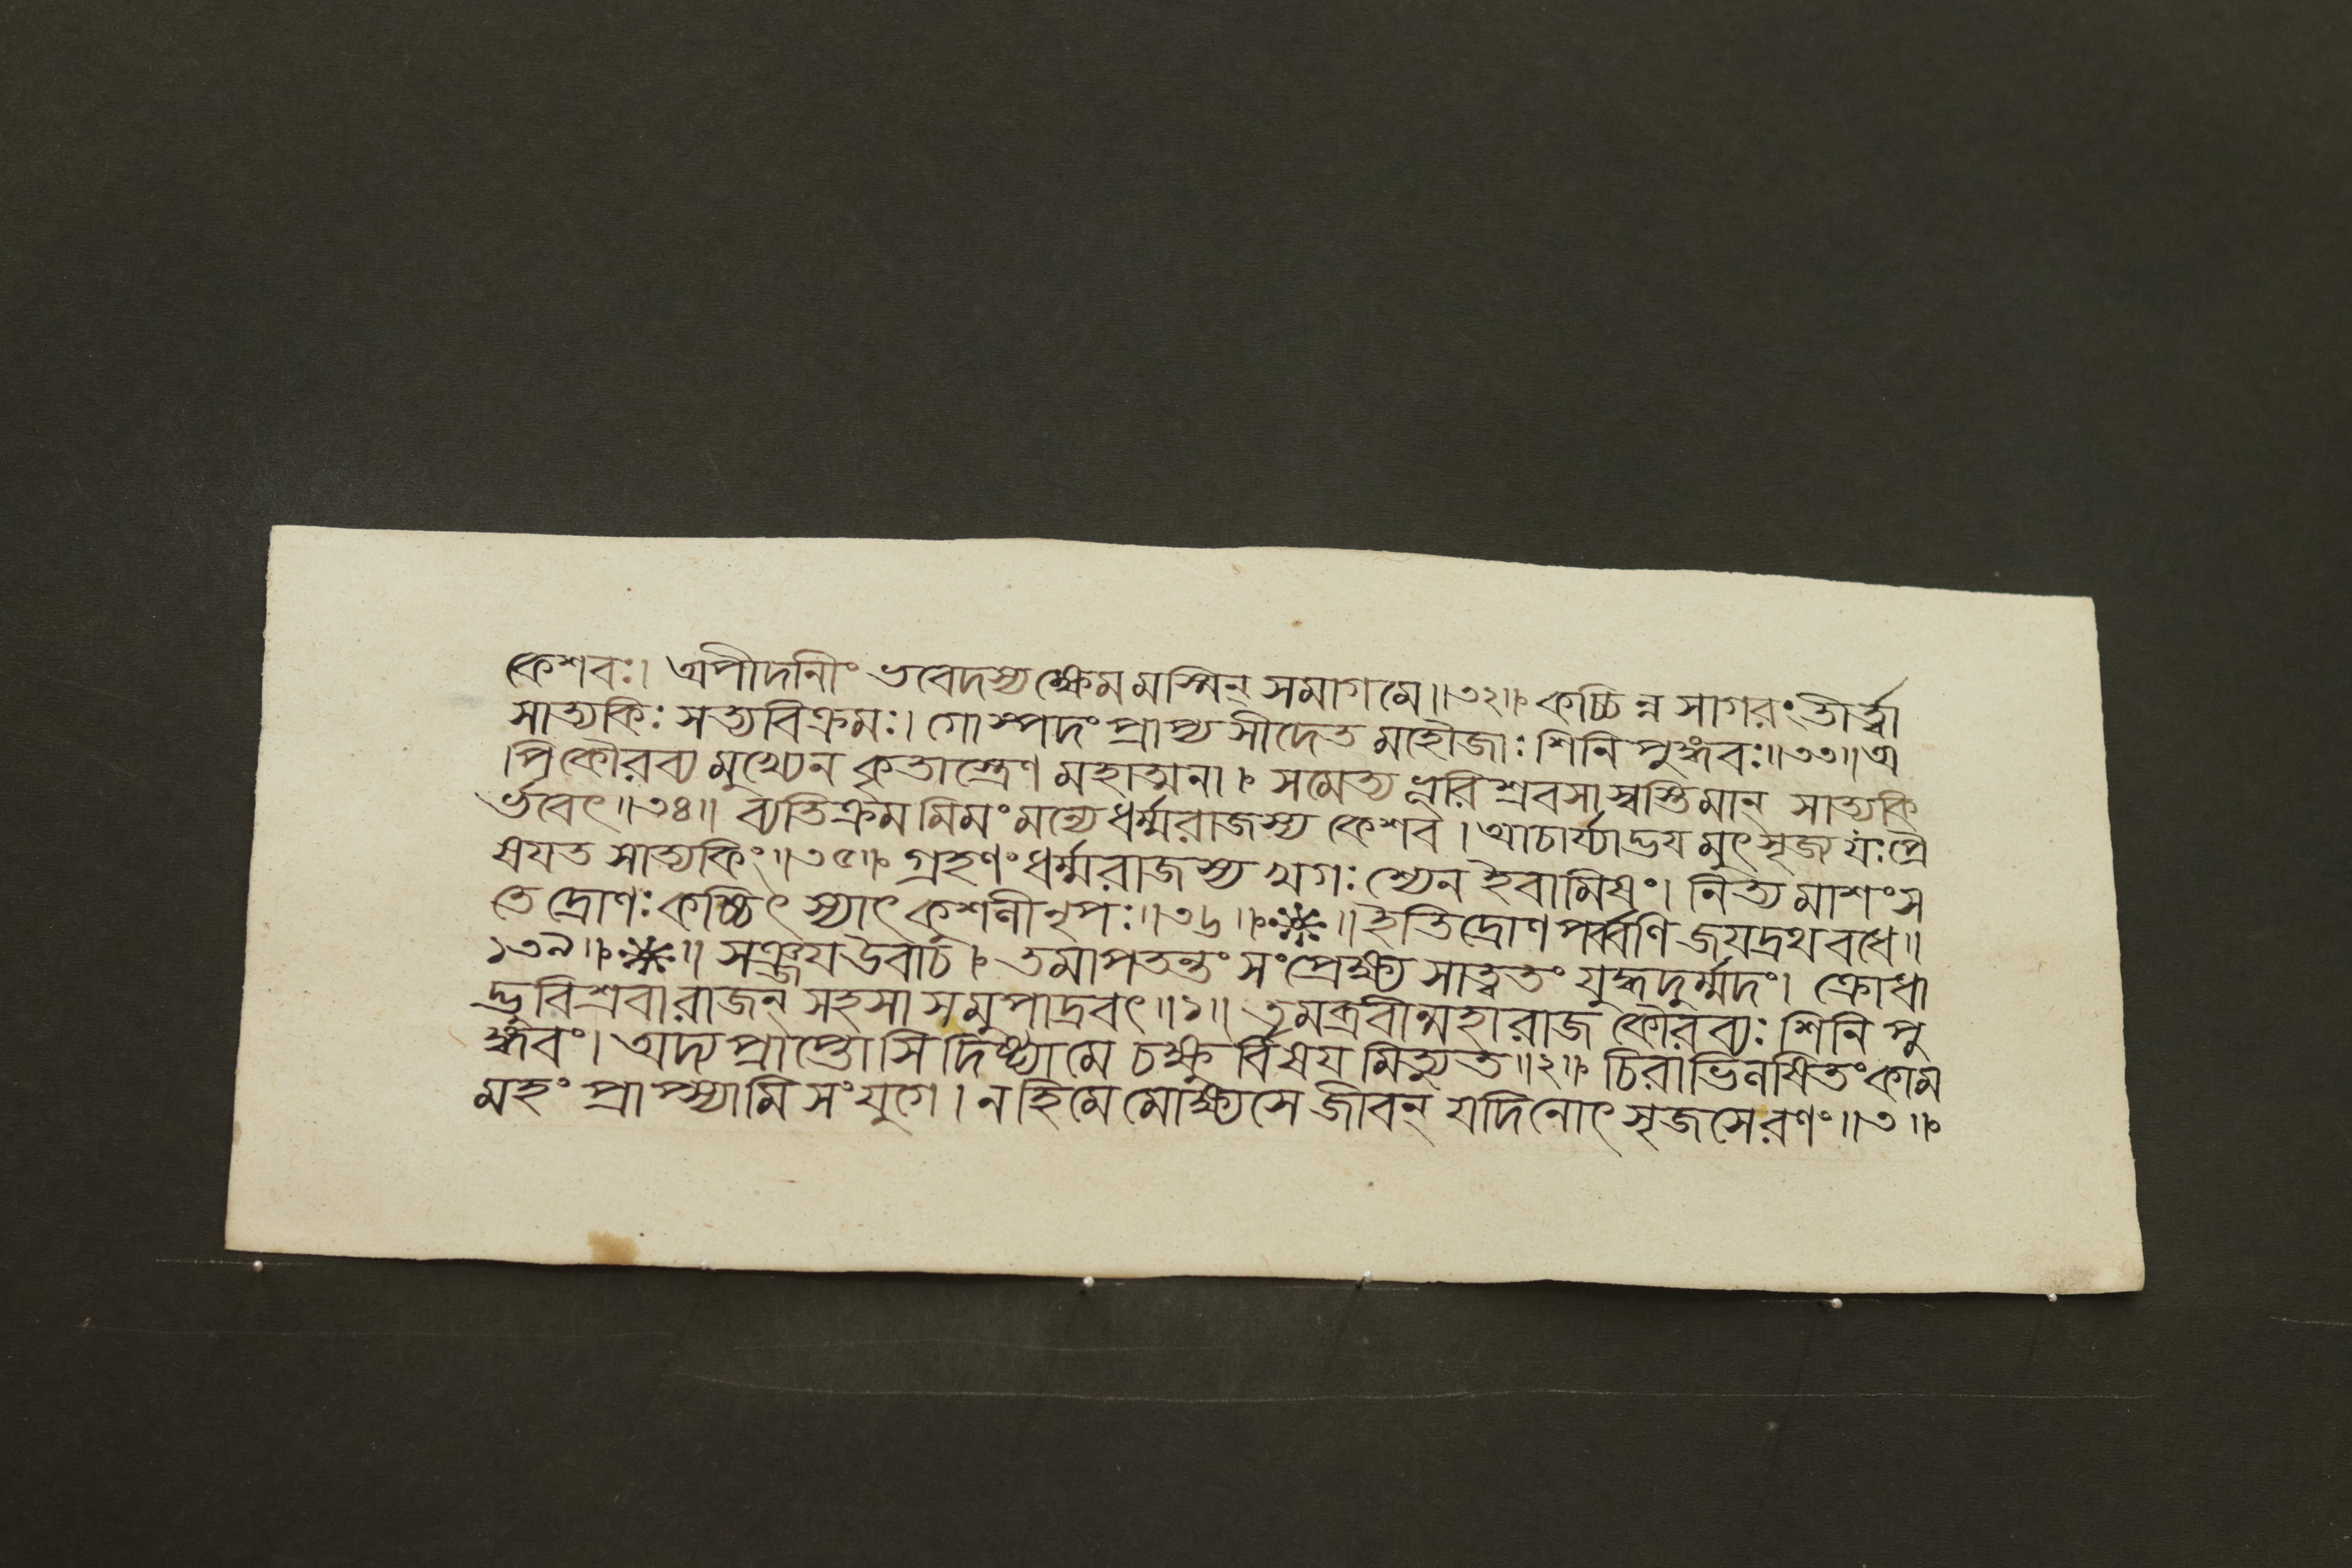 কেশবঃ। অপীদানীং ভবেদস্য ক্ষেমমস্মিন্ সমাগমে॥৩২॥ কচ্চিন্ন সাগরং তীর্ত্ত্বা
সাত্যকিঃ সত্যবিক্রমঃ। গোস্পদং প্রাপ্য সীদেত মহৌজাঃ শিনিপুঙ্গবঃ॥৩৩॥ অ
পি কৌরব্যমুখ্যেন কৃতাস্ত্রেণ মহাত্মনা। সমেত্য ভূরিশ্রবসা স্বস্তিমান্ সাত্যকি
র্ভবেৎ॥৩৪॥ ব্যতিক্রমমিমং মন্যে ধর্ম্মরাজস্য কেশব। আচার্য্যাদ্ভয়মুৎসৃজ্য যঃ প্রে
ষয়ত সাত্যকিং॥৩৫॥ গ্রহণং ধর্ম্মরাজস্য খগঃ শ্যেন ইবামিষং। নিত্যমাশংস
তে দ্রোণঃ কচ্চিৎ স্যাৎ কুশলী নৃপঃ॥৩৬॥ ॥ ইতি দ্রোণপর্ব্বণি জয়দ্রথবধে॥
১৩৯॥ ॥ সঞ্জয় উবাচ। তমাপতন্তং সংপ্রেক্ষ্য সাত্বতং যুদ্ধদুর্ম্মদং। ক্রোধা
দ্ভূরিশ্রবা রাজন্ সহসা সমুপাদ্রবৎ॥১॥ তমব্রবীন্মহারাজ কৌরব্যঃ শিনিপু
ঙ্গবং। অদ্য প্রাপ্তোসি দিষ্ট্যা মে চক্ষুর্বিষয়মিত্যুত॥২॥ চিরাভিলষিতং কাম
মহং প্রাপ্স্যামি সংযুগে। ন হি মে মোক্ষ্যসে জীবন্ যদি নোৎসৃজসে রণং॥৩॥